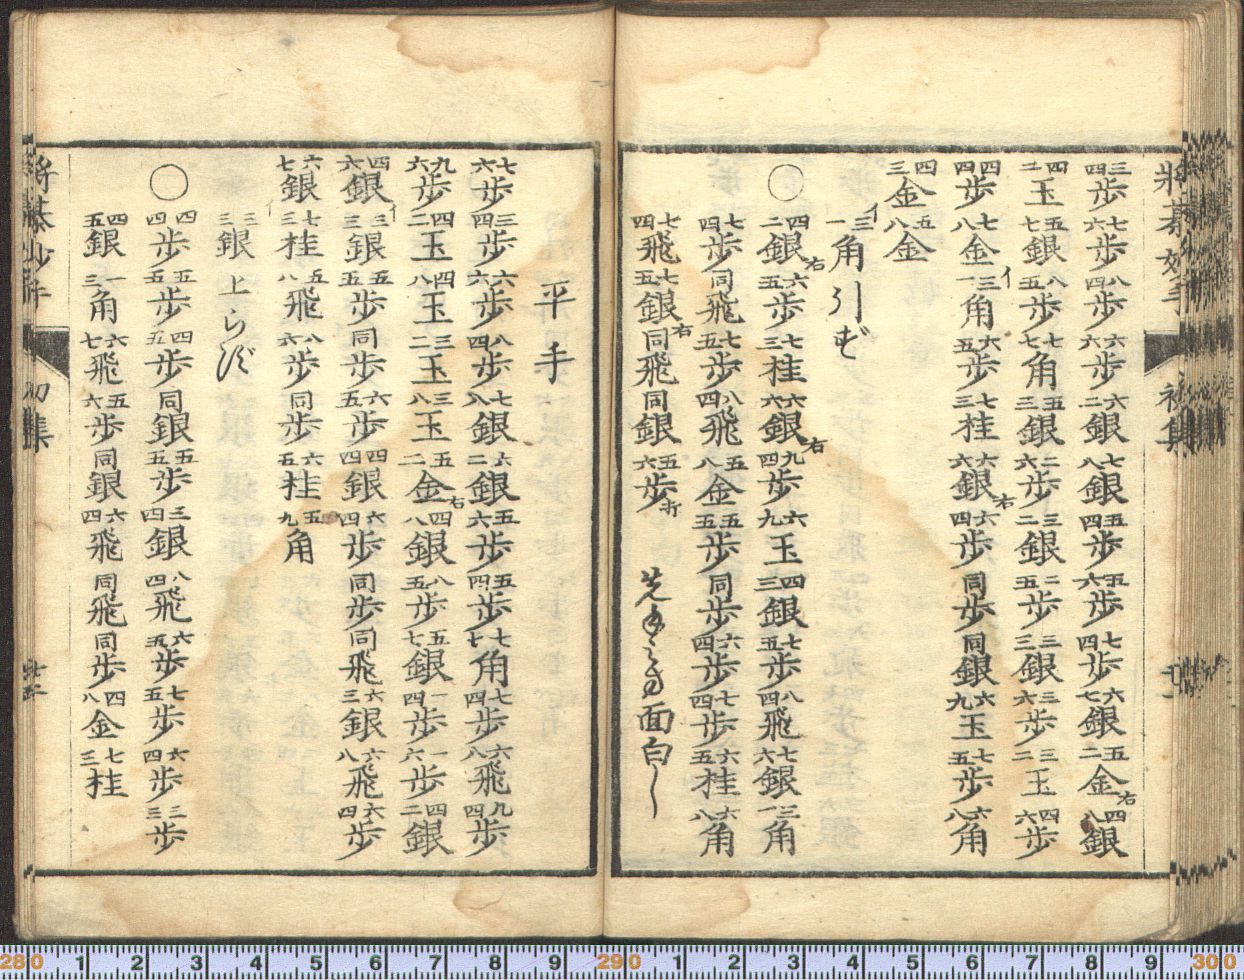 将棊妙手　初集
三四歩七六歩八四歩六六歩六二銀七八銀五四歩五六歩七四歩六七銀五二金右四八銀
四二玉五七銀八五歩七七角五三銀二六歩三二銀二五歩三三銀三六歩三二玉四六歩
四四歩七八金イ三一角六五歩七三桂六六銀右六四歩同歩同銀六九玉七五歩六八角
四三金五八金
イ三一角引ず
○四二銀右六五歩七三桂六六銀右九四歩六九玉四三銀七五歩八四飛七六銀三一角
七四歩同飛七五歩八四飛五八金五五歩同歩六四歩七四歩六五桂六八角
七四飛七五銀右同飛同銀五六歩打　先手面白し
平手
七六歩三四歩六六歩八四歩七八銀六二銀五六歩五四歩七七角七四歩六八飛九四歩
九六歩四二玉四八玉三二玉三八玉五二金右四八銀八五歩五七銀一四歩一六歩四二銀
四六銀イ三三銀五五歩同歩六五歩四四銀六四歩同歩同飛六三銀六八飛六四歩
六七銀七三桂五八飛八六歩同歩六五桂五九角
イ三三銀上らず
○四四歩五五歩四五歩同銀五五歩三四銀八四飛六五歩七五歩六四歩三三歩
四五銀一三角六七飛五六歩同銀六四飛同飛同歩四八金七三桂
将棊妙手　初集